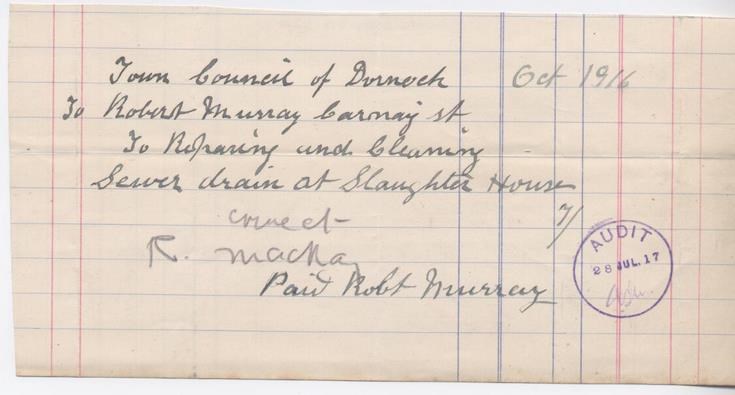 Town Council of Dornoch Oct 1916
To Robert Murray Carnaig st
To Reparing and Cleaning
Sewer drain at Slaughter House
7/
correct
R. Mackay
Paid Robt Murray
AUDIT
28 JUL.17